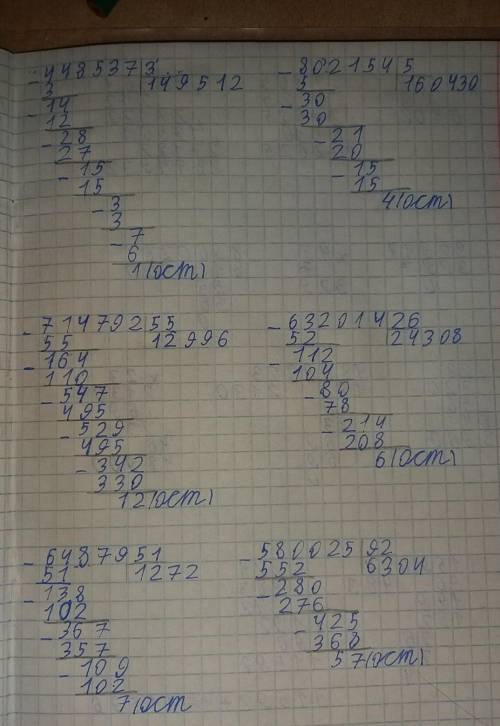 448537 | 3
- 3 | 149512
14
- 12
- 28
27
- 15
15
- 3
3
- 7
6
1 (ост)
- 802154 | 5
5 | 160430
- 30
30
- 21
20
- 15
15
4 (ост)
- 714792 | 55
55 | 12996
- 164
110
- 547
495
- 529
495
- 342
330
12 (ост)
- 632014 | 26
52 | 24308
- 112
104
- 80
78
- 214
208
6 (ост)
- 64879 | 51
51 | 1272
- 138
102
- 367
357
- 109
102
7 (ост
- 580025 | 92
552 | 6304
- 280
276
- 425
368
57 (ост)